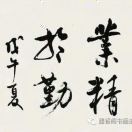 業精
於勤
戊午夏